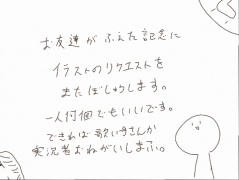 お友達がふえた記念に
イラストのリクエストを
またぼしゅうします。
一人何個でもいいです。
できれば歌い手さんか
実況者おねがいしまふ。